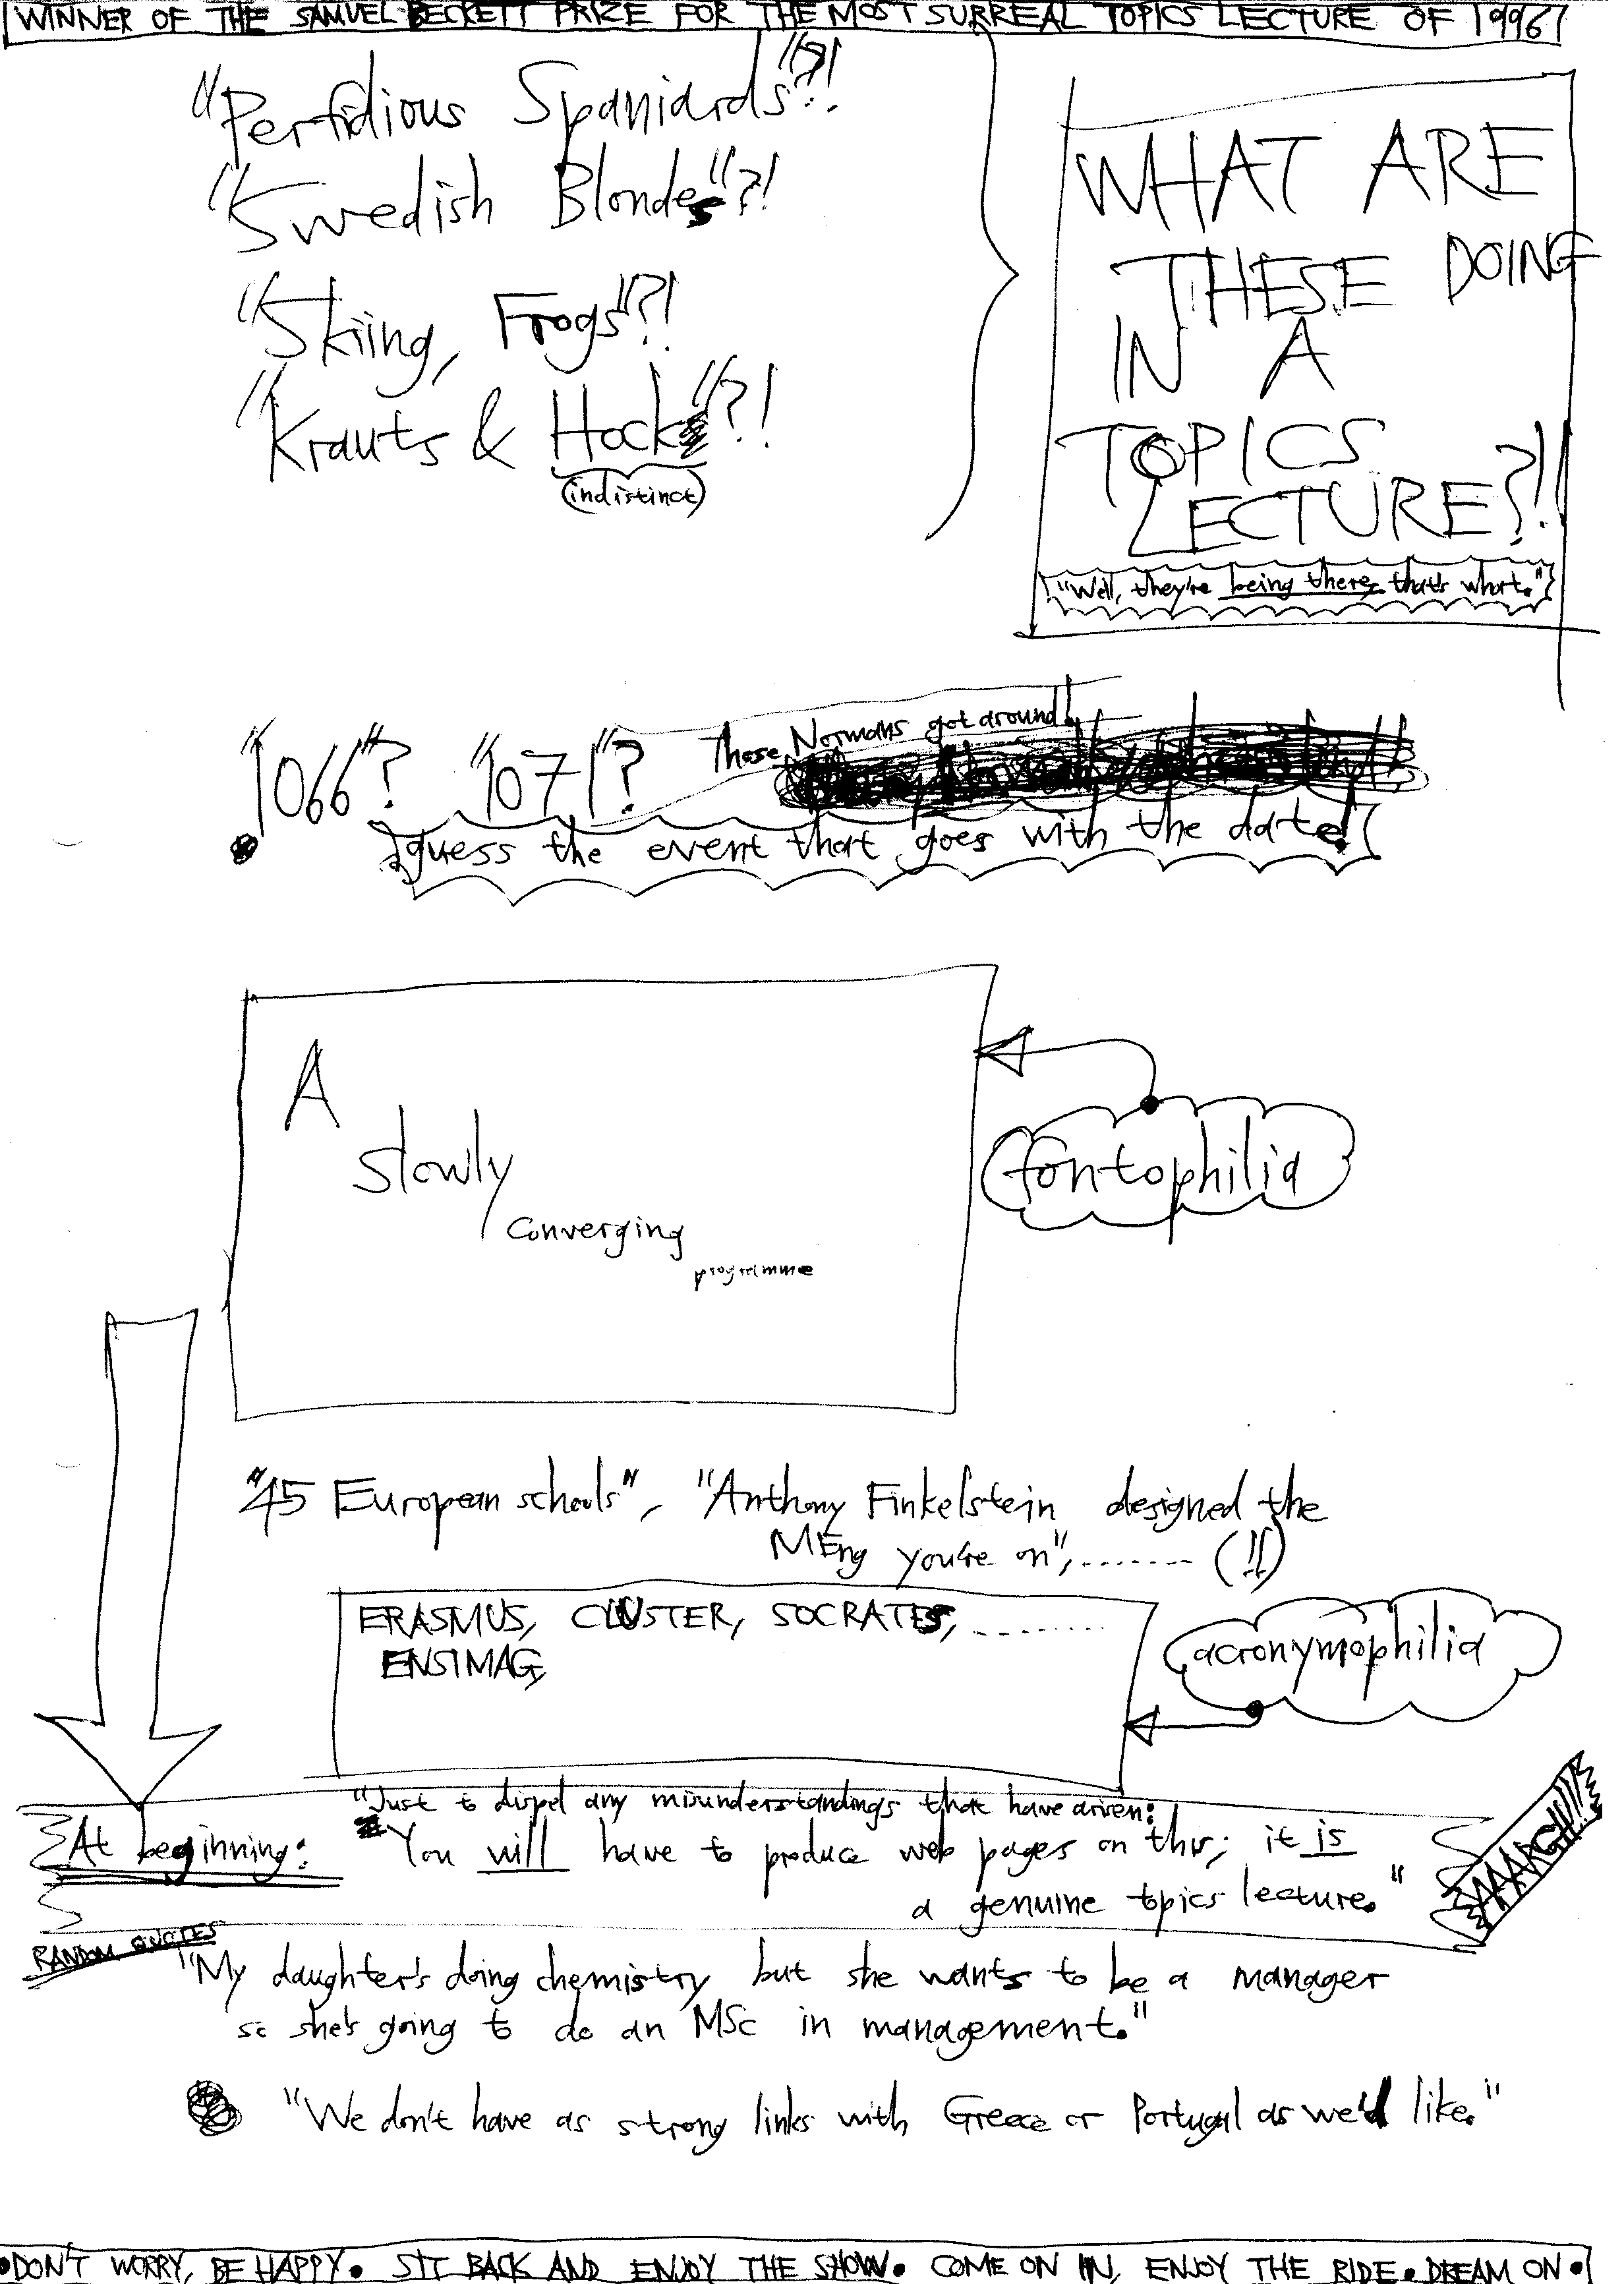 WINNER OF THE SAMUEL BECKETT PRIZE FOR THE MOST SURREAL TOPICS LECTURE OF 1996
"Perfidious Spaniards"?!
"Swedish Blondes"?!
"Skiing, Frogs"?!
"Krauts & Hock"?!
(indistinct)
WHAT ARE
THESE DOING
IN A
TOPICS
LECTURE?!!
"Well, they're being there, that's what."
"1066"? "1071"? These Normans got around!
guess the event that goes with the date!
A
slowly
converging
programme
fontophilia
"45 European schools", "Anthony Finkelstein designed the
MEng you're on",....... (!!)
ERASMUS, CLUSTER, SOCRATES, ........
ENSIMAG,
acronymophilia
"Just to dispel any misunderstandings that have arisen:
At beginning: You will have to produce web pages on this; it is
a genuine topics lecture."
AAAARGH!!!!
RANDOM QUOTES
"My daughter's doing chemistry but she wants to be a manager
so she's going to do an MSc in management."
"We don't have as strong links with Greece or Portugal as we'd like."
•DON'T WORRY, BE HAPPY• SIT BACK AND ENJOY THE SHOW• COME ON IN, ENJOY THE RIDE• DREAM ON•